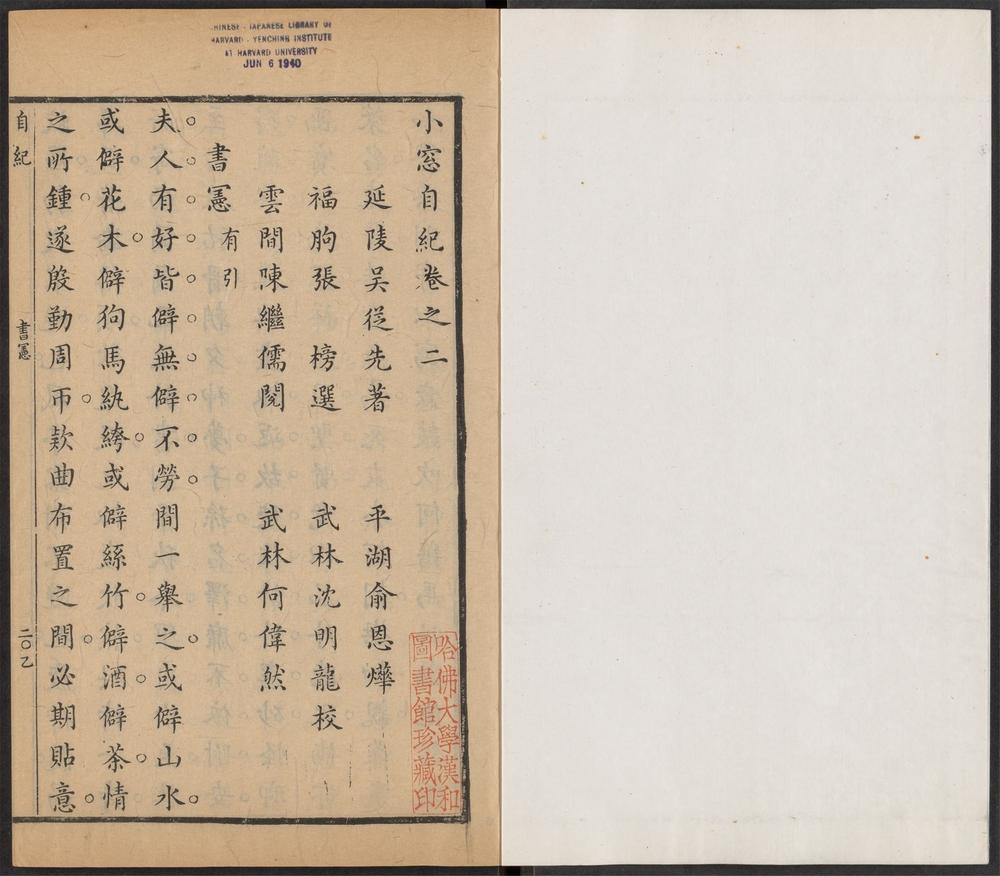 CHINESE - JAPANESE LIBRARY OF
HARVARD - YENCHING INSTITUTE
AT HARVARD UNIVERSITY
JUN 6 1940
小窓自紀卷之二
延陵吴從先著 平湖俞恩燁
福朐張 榜選 武林沈明龍校
雲間陳繼儒閱 武林何偉然
書憲 有引
夫人有好皆僻無僻不勞間一舉之或僻山水
或僻花木僻狗馬紈絝或僻絲竹僻酒僻茶情
之所鍾遂殷勤周帀欵曲布置之間必期貼意
自紀 書憲 二〇乙
哈佛大學漢和
圖書館珍藏印